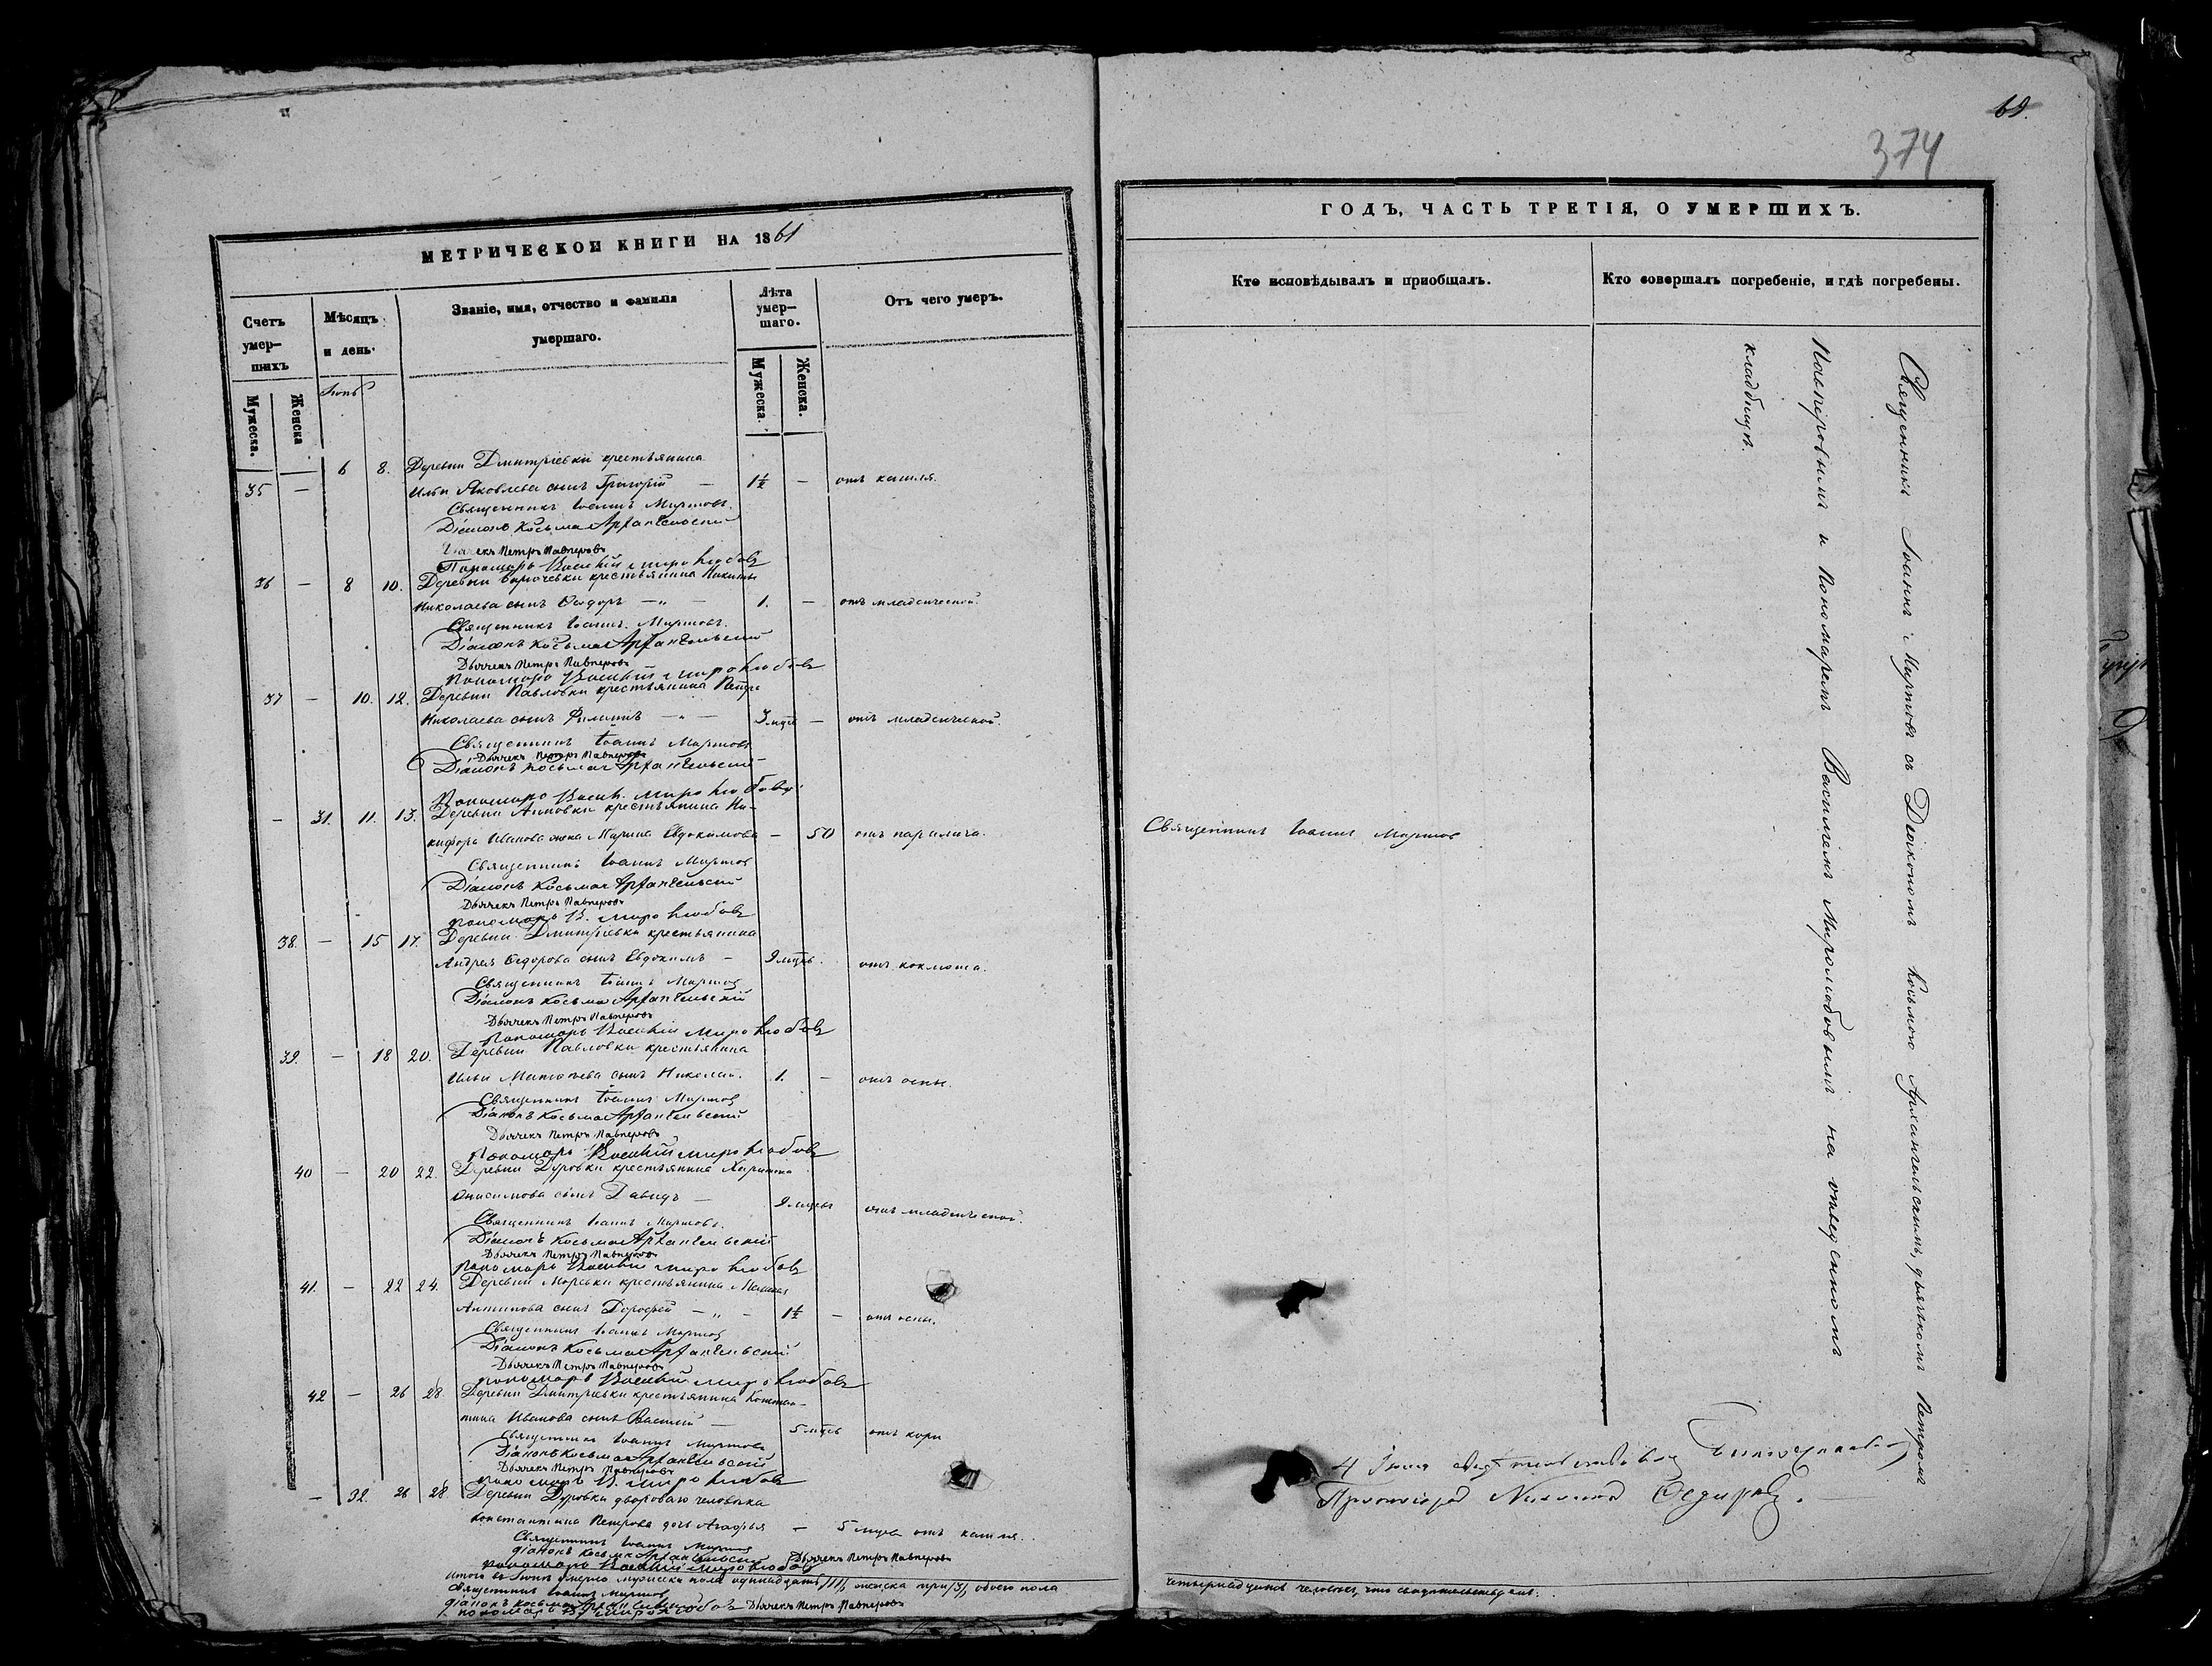 69.
374
МЕТРИЧЕСКОЙ КНИГИ НА 1861
Счетъ умер-
шихъ
Мужеска.
Женска
Мѣсяцъ
и день.
Званіе, имя, отчество и фамилія
умершаго.
Лѣта
умер-
шаго.
Мужеска.
Женска.
Отъ чего умеръ.
35 — 6 8. Деревни Дмитріевки крестьянина
Ильи Яковлева сынъ Григорій — 1½ — отъ кашля.
Священникъ Іоаннъ Миртовъ.
Діаконъ Косьма Архангельскій
Дьячекъ Петръ Павперовъ
Пономарь Василій Миролюбовъ
36 — 8 10. Деревни крестьянина Никиты
Николаева сынъ Ѳедоръ — „ — 1. — отъ младенческой.
Священникъ Іоаннъ Миртовъ.
Діаконъ Косьма Архангельскій
Дьячекъ Петръ Павперовъ
Пономарь Василій Миролюбовъ
37 — 10. 12. Деревни Павловки крестьянина Петра
Николаева сынъ Филиппъ — „ — 3 мцѣ — отъ младенческой.
Священникъ Іоаннъ Миртовъ
Дьячекъ Петръ Павперовъ
Діаконъ Косьма Архангельскій
Пономарь Васил. Миролюбовъ
— 31. 11. 13. Деревни крестьянина Ни-
кифора Иванова жена Марина Евдокимова — 50 отъ паралича. Священникъ Іоаннъ Миртов
Священникъ Іоаннъ Миртов
Діаконъ Косьма Архангельскій
Дьячекъ Петръ Павперовъ
Пономарь В. Миролюбовъ
38. — 15 17. Деревни Дмитріевки крестьянина
Андрея Ѳедорова сынъ Евдокимъ — 9 мцѣв. отъ коклюша.
Священникъ Іоаннъ Миртов
Діаконъ Косьма Архангельскій
Дьячекъ Петръ Павперовъ
Пономарь Василій Миролюбовъ
39. — 18 20. Деревни Павловки крестьянина
Ильи сынъ Николай. 1. — отъ оспы.
Священникъ Іоаннъ Миртов
Діаконъ Косьма Архангельскій
Дьячекъ Петръ Павперовъ
Пономарь Василій Миролюбовъ
40 — 20 22. Деревни Дуровки крестьянина
Онисимова сынъ Давидъ — 9 мцевъ отъ младенческой.
Священникъ Іоаннъ Миртовъ.
Діаконъ Косьма Архангельскій
Дьячекъ Петръ Павперовъ
Пономарь Василій Миролюбовъ
41. — 22 24. Деревни крестьянина
Антипова сынъ Дорофей — „ — 1½ — отъ оспы.
Священникъ Іоаннъ Миртов
Діаконъ Косьма Архангельскій
Дьячекъ Петръ Павперовъ
Пономарь Василій Миролюбовъ
42 — 26 28 Деревни Дмитріевки крестьянина Констан-
тина Иванова сынъ Василій — 5 мцевъ отъ кори
Священникъ Іоаннъ Миртовъ
Діаконъ Косьма Архангельскій
Дьячекъ Петръ Павперовъ
Пономарь В. Миролюбовъ
— 32. 26 28. Деревни Дуровки двороваго человѣка
Константина Петрова дочь Агафья — 5 мцев отъ кашля.
Священникъ Іоаннъ Миртов
Діаконъ Косьма Архангельскій Дьячекъ Петръ Павперовъ
Пономарь Василій Миролюбов
Итого въ умерло мужеска пола одинадцать /11/, женска три /3/, обоего пола
Священникъ Іоаннъ Миртов
Діаконъ Косьма Архангельскій
Пономарь В. Миролюбовъ Дьячекъ Петръ Павперовъ
ГОДЪ, ЧАСТЬ ТРЕТІЯ, О УМЕРШИХЪ.
Кто исповѣдывалъ и пріобщалъ.
Кто совершалъ погребеніе, и гдѣ погребены.
Священникъ Іоаннъ Миртовъ съ Діакономъ Косьмою Архангельскимъ, дьячкомъ Петромъ
Павперовымъ и Пономаремъ Василіемъ Миролюбовымъ на отведенномъ
кладбищѣ.
4 Іюля свидѣтельствовалъ Благочинный
Протоіерей
четырнадцать человѣкъ, что свидѣтельствуемъ: